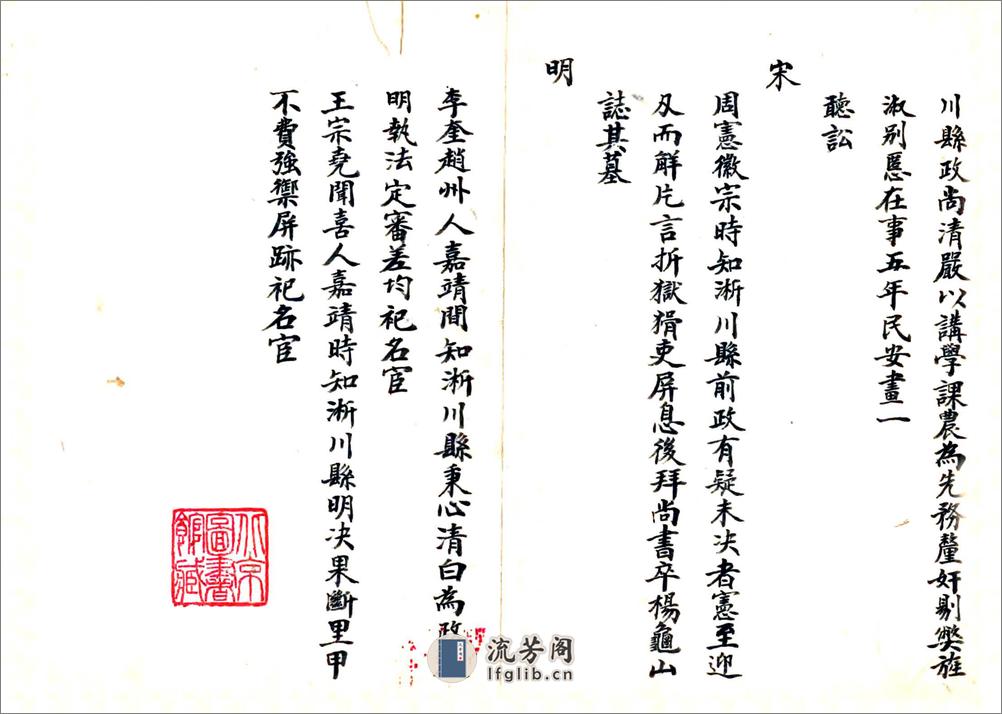 川縣政尚清嚴以講學課農為先務釐奸剔獘旌
淑別慝在事五年民安畫一
聽訟
宋
周憲徽宗時知淅川縣前政有疑未决者憲至迎
刄而解片言折獄猾吏屏息後拜尚書卒楊龜山
誌其墓
明
李奎趙州人嘉靖間知淅川縣秉心清白為政
明執法定審差均祀名宦
王宗堯聞喜人嘉靖時知淅川縣明决果斷里甲
不費強禦屏跡祀名宦
北京
圖書
館藏
流芳阁
lfglib.cn